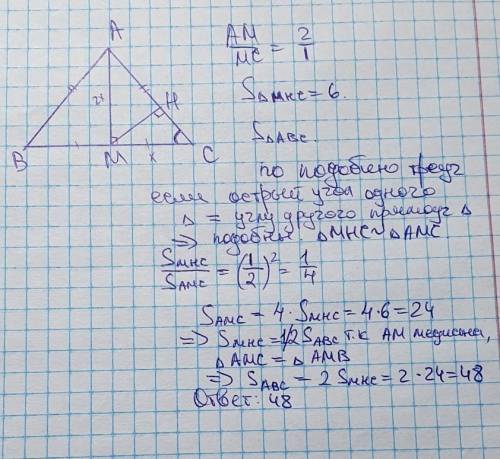 A
AM/MC = 2/1
2x
H
S△MHC = 6.
B M x C
S△ABC.
по подобию треуг
если острый угол одного
△ = углу другого прямоуг △
⇒ подобны. △MHC ~ △AMC
SMHC/SAMC = (1/2)² = 1/4
SAMC = 4 · SMHC = 4·6 = 24
⇒ SMHC = 1/2 SABC т.к AM медиана,
△AMC = △AMB
⇒ SABC = 2 SMHC = 2·24 = 48
Ответ: 48